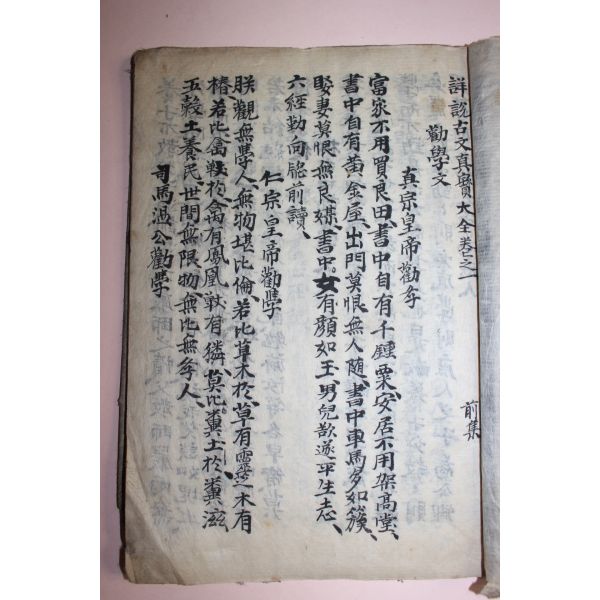 詳說古文眞寶大全卷之一 前集
勸學文
真宗皇帝勸孝
富家不用買良田書中自有千鍾粟安居不用架高堂
書中自有黃金屋出門莫恨無人隨書中車馬多如簇
娶妻莫恨無良媒書中女有顔如玉男兒欲遂平生志
六經勤向牕前讀
仁宗皇帝勸學
朕觀無學人無物堪比倫若比草木於草有靈芝木有
椿若比禽獸於禽有鳳凰獸有獜莫比糞土於糞滋
五穀土養民世間無限物無比無孝人
司馬溫公勸學